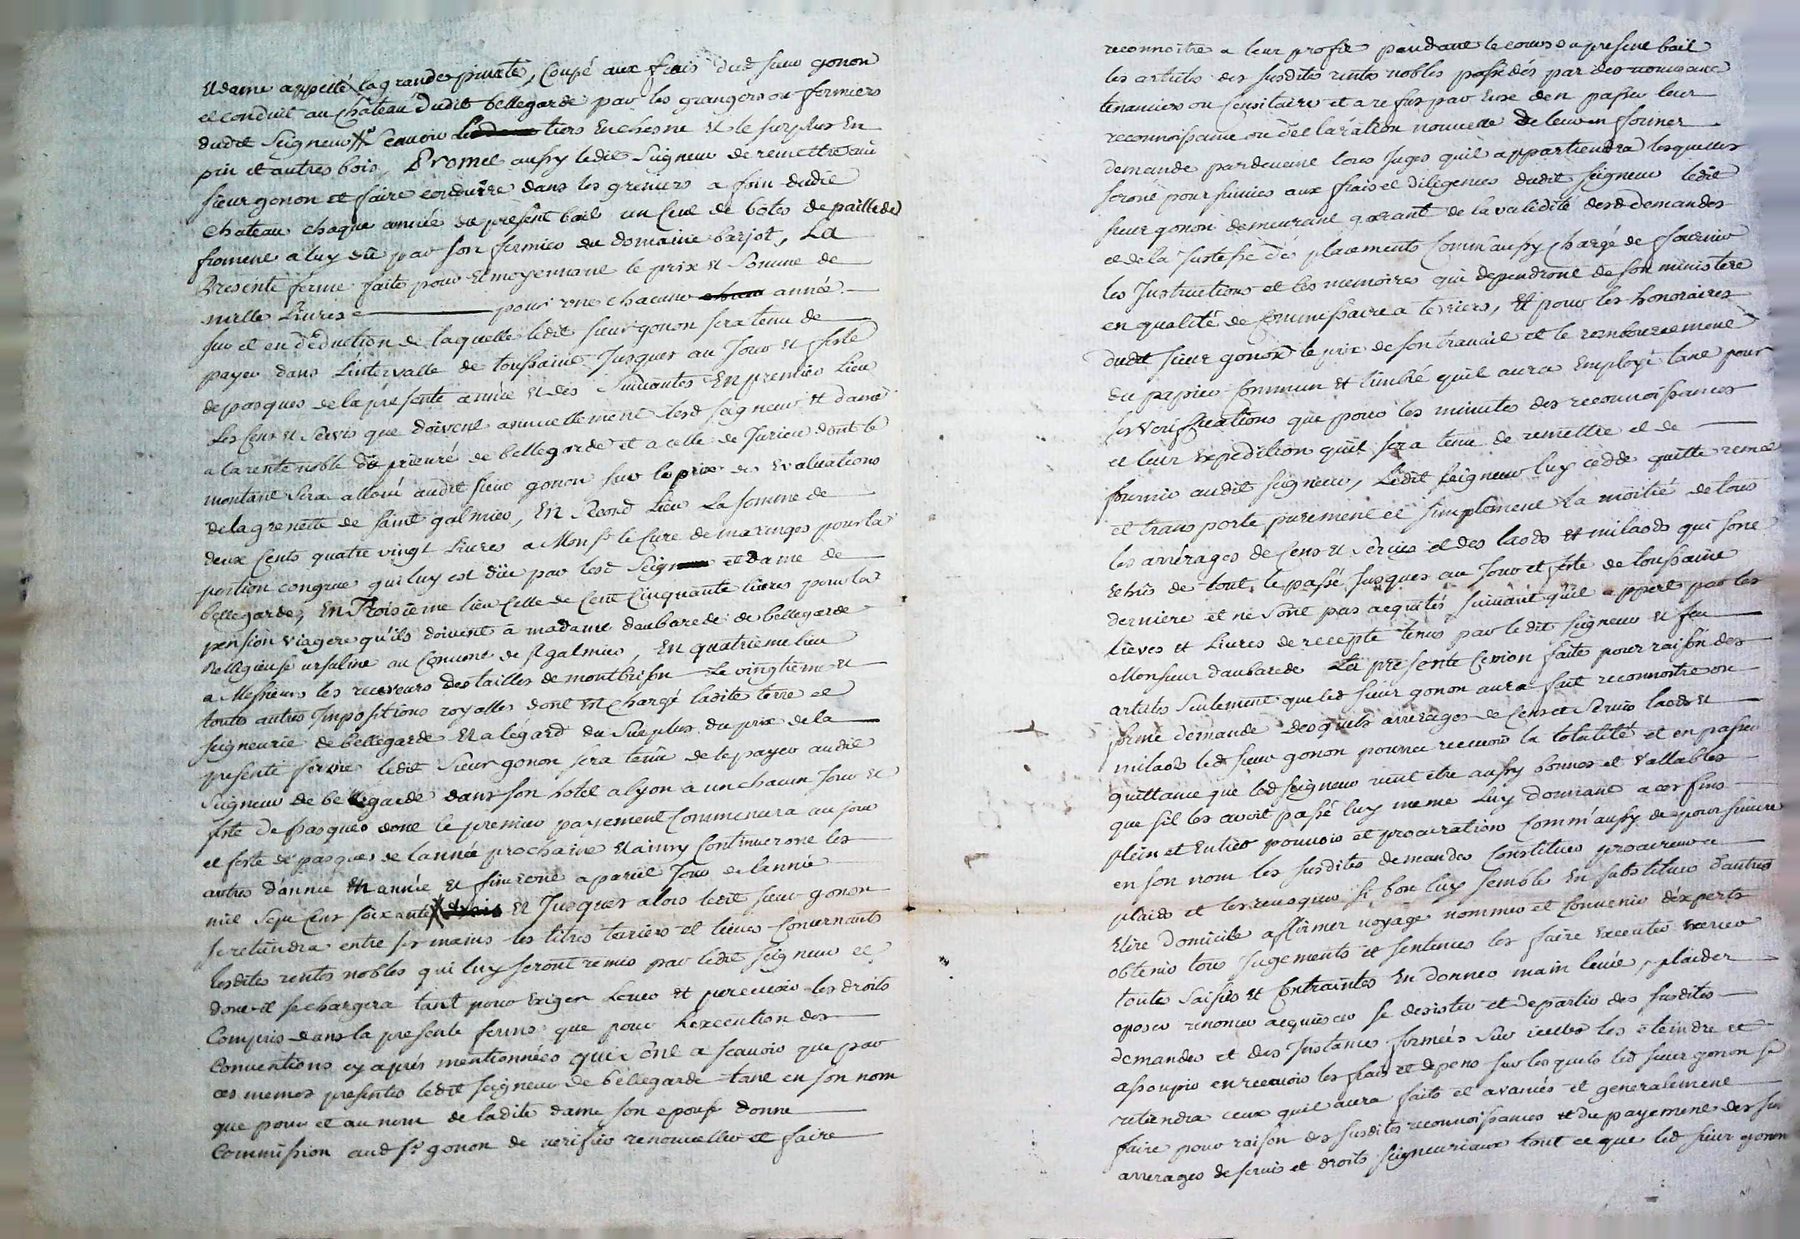 et dame appellé la grande pinatée, Coupé aux frais dud sieur gonon
et conduit au Château dudit bellegarde par les grangers ou fermiers
dudit Seigneur Scavoir tiers en chesne et le surplus en
pin et autres bois, Promet aussy ledit Seigneur de remettre au
sieur gonon et faire conduire dans les greniers a foin dudit
Chateau chaque année du present bail un Cent de botes de paille de
froment a luy dû par son fermier du domaine barjot, La
Presente ferme faite pour et moyennant le prix et Somme de
mille Livres pour une chacune année
sur et en déduction de laquelle ledit sieur gonon sera tenu de
payer dans L'intervalle de toussaint Jusques au Jour et feste
de pasques de la présente année et des Suivantes En premier Lieu
Les Cens et Servis que doivent annuellement lesd seigneur et dame
a la rente noble du prieuré de bellegarde et a celle de Jurieu dont le
montant sera alloué audit sieur gonon sur le prix des Evaluations
de la grenette de saint galmier, En Second Lieu La somme de
deux Cents quatre vingt Livres a Monsr le Curé de maringes pour la
portion congrue qui luy est düe par lesd Seigneur et dame de
bellegarde, En Troisieme lieu Celle de Cent Cinquante livres pour la
pension viagere qu'ils doivent à madame daubarede de bellegarde
Relligieuse ursuline au Couvent de st galmier, En quatrieme lieu
a Messieurs les receveurs des tailles de montbrison Le vingtieme et
toutes autres Impositions royalles dont est chargé ladite terre et
seigneurie de bellegarde Et a l'égard du Surplus du prix de la
presente ferme ledit Sieur gonon sera tenu de le payer audit
Seigneur de bellegarde dans son hotel a lyon a un chacun Jour et
feste de pasques dont le premier payement Commencera au jour
et feste de pasques de l'année prochaine Et ainsy Continueront les
autres d'année en année et finiront a pareil Jour de l'année
mil Sept Cent soixante Et Jusques alors ledit sieur gonon
se retiendra entre ses mains les titres terriers et lieves Concernants
lesdites rentes nobles qui luy seront remis par ledit seigneur et
dont il se chargera tant pour Exiger Lever et percevoir les droits
Compris dans la presente ferme que pour L'execution des
Conventions cy après mentionnées qui Sont a scavoir que par
ces memes presentes ledit seigneur de bellegarde tant en son nom
que pour et au nom de ladite dame son epouse donne
Commission aud sr gonon de verifier renouveller et faire
reconnoitre a leur profit pendant le cours du present bail
les articles des susdites rentes nobles possédés par des nouveaux
tenanciers ou Censitaires et a refus par Eux d'en passer leur
reconnoissance ou déclaration nouvelle de leur en former
demande pardevant tous Juges qu'il appartiendra lesquelles
seront poursuivies aux frais et diligences dudit seigneur ledit
sieur gonon demeurant garant de la validité desd demandes
et de la Justesse des placements Comm'aussy Chargé de fournir
les Instructions et les memoires qui dependront de son ministere
en qualité de Commissaire a terriers, Et pour les honoraires
dudit sieur gonon le prix de son travail et le remboursement
du papier Commun et timbré qu'il aura Employé tant pour
les Verifications que pour les minutes des reconnoissances
et leur Expedition qu'il sera tenu de remettre et de
fournir audit seigneur, Ledit seigneur luy cedde quitte remet
et transporte purement et simplement La moitié de tous
les arrérages de Cens et Servis et des laods et milaods qui sont
Echus de tout le passé Jusques au Jour et feste de toussaint
derniere et ne Sont pas acquités suivant qu'il appert par les
lieves et Livres de recepte tenus par ledit seigneur et feu
Monsieur daubarede La presente Cession faite pour raison des
articles Seulement que led sieur gonon aura fait reconnoitre ou
formé demande desquels arrerages de Cens et Servis laods et
milaods led sieur gonon pourra recevoir la totalité et en passer
quittance que led seigneur veut etre aussy bonnes et vallables
que s'il les avoit passé luy meme Luy donnant a ces fins
plein et Entier pouvoir et procuration Comm'aussy de poursuivre
en son nom les susdites demandes Constituer procureur
plaids et les revoquer si bon luy semble En substituer d'autres
Elire domicile affirmer voyage nommer et Convenir d'experts
obtenir tous Jugements et sentences les faire executer
toute saisies et Contraintes En donner main levée, plaider
oposer renoncer acquiescer se desister et departir des susdites
demandes et des Instances formées Sur icelles les eteindre et
assoupir en recevoir les frais et depens sur lesquels led sieur gonon se
retiendra ceux qu'il aura faits et avancés et generalement
faire pour raison des susdites reconnoissances et du payement des
arrerages de servis et droits seigneuriaux tout ce que led sieur gonon